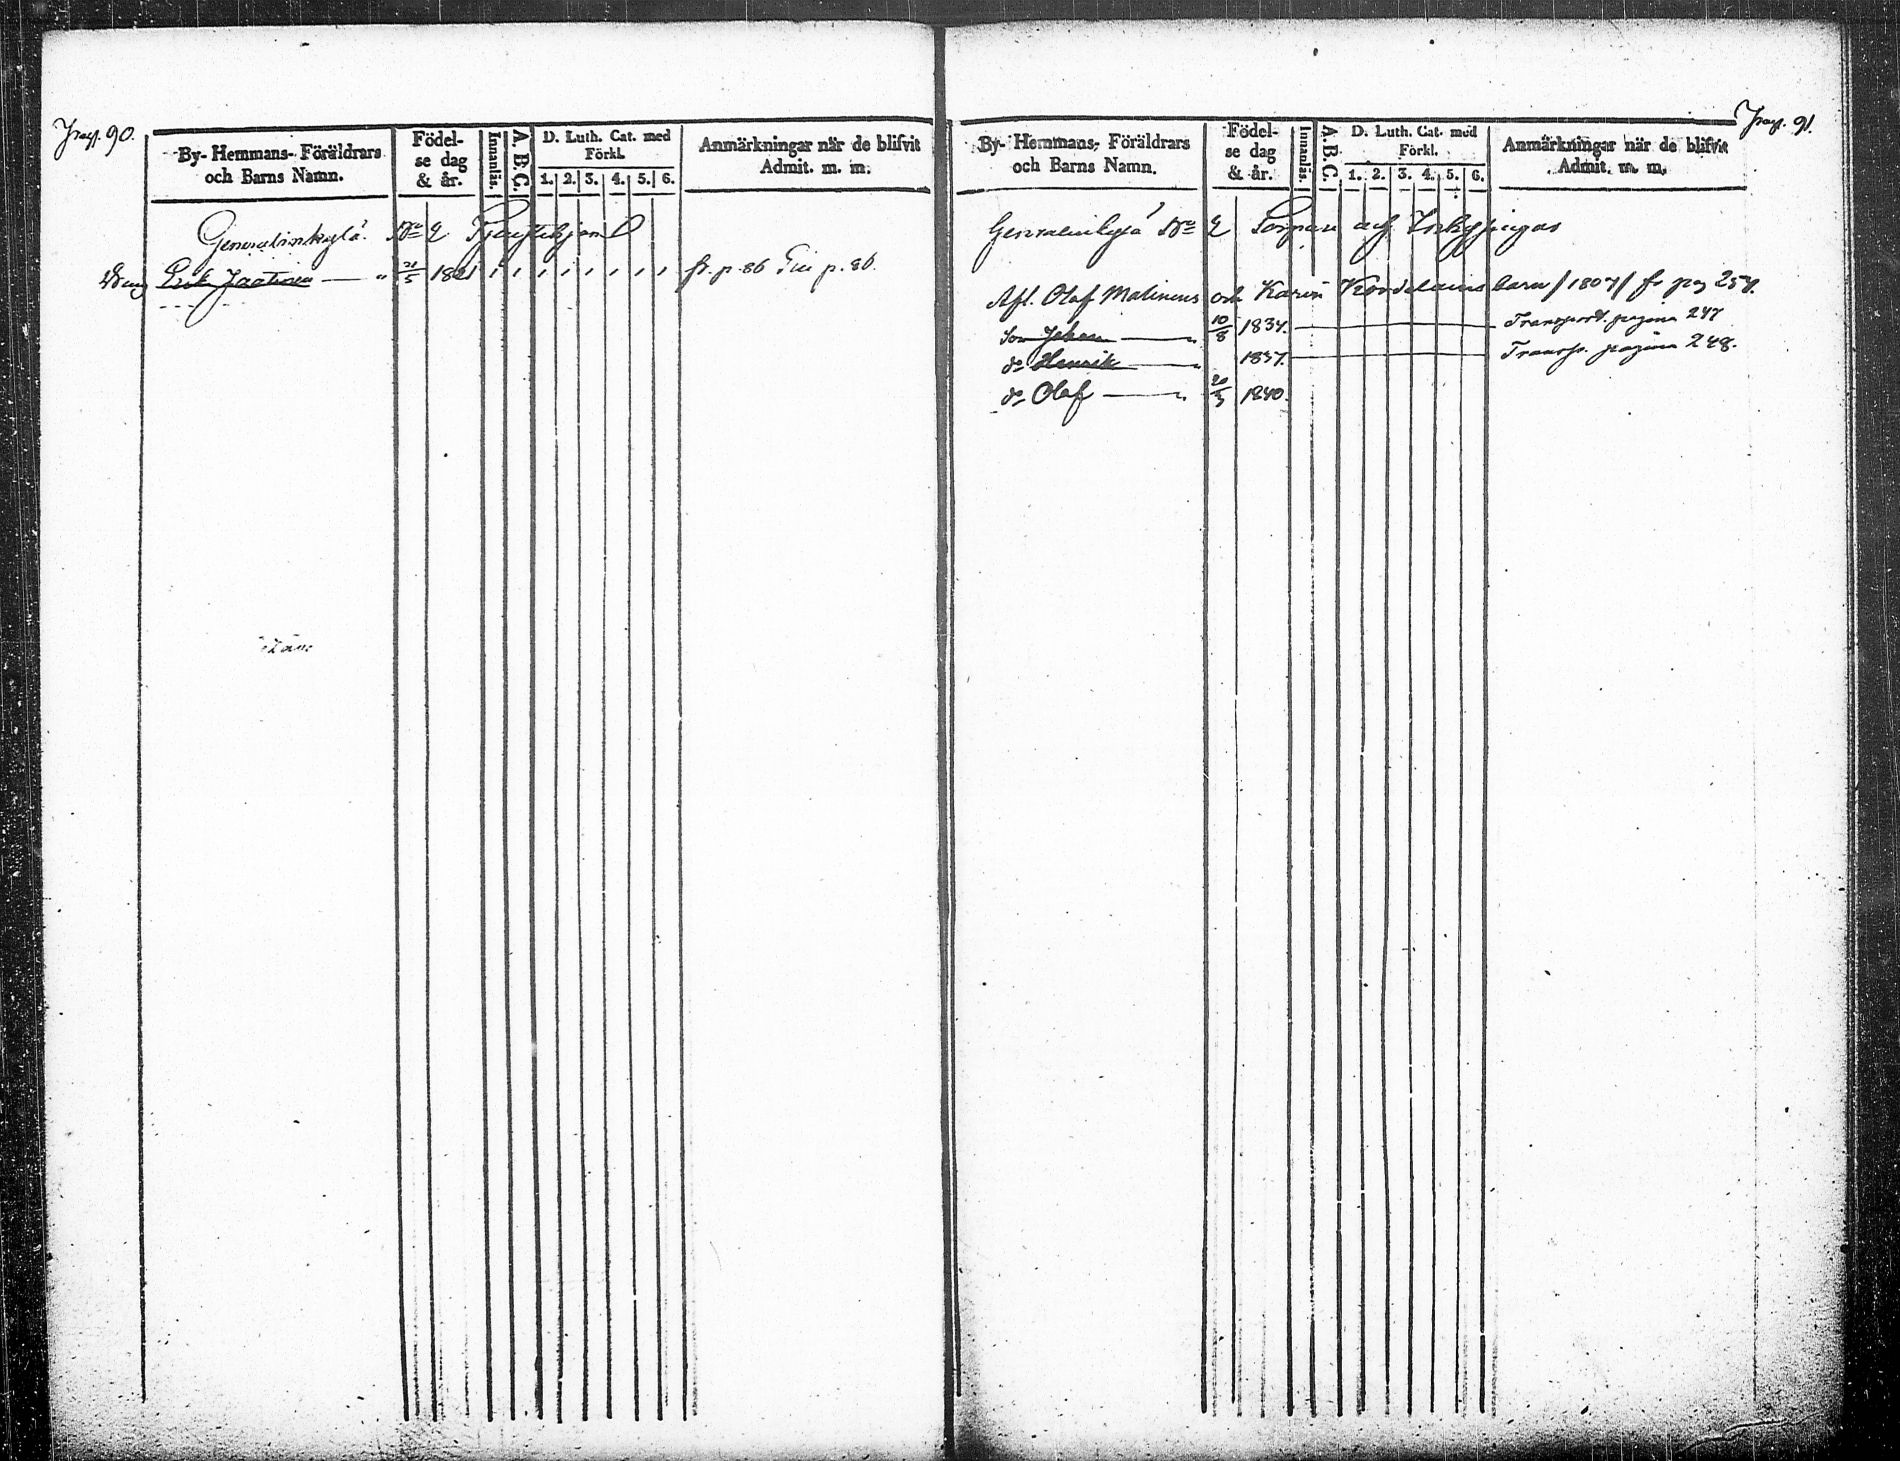 Pag. 90.
By- Hemmans- Föräldrars och Barns Namn.
Födelse dag & år.
Innanläs.
A. B. C.
D. Luth. Cat. med Förkl.
1. 2. 3. 4. 5. 6.
Anmärkningar när de blifvit Admit. m. m.
No 2
Erik Jaatinen — " 21/5 1821 fr. p. 86 p. 86.
Pag. 91.
By- Hemmans- Föräldrars och Barns Namn.
Födelse dag & år.
Innanläs.
A. B. C.
D. Luth. Cat. med Förkl.
1. 2. 3. 4. 5. 6.
Anmärkningar när de blifvit Admit. m. m.
No 2 och
Afl. Olof Matinens och Karin barn /1807/ fr pag 257.
Son Johan — " 10/8 1834. — Transport. pagina 247
do Henrik — " 1837. — Transp. pagina 248.
do Olof — " 1840.